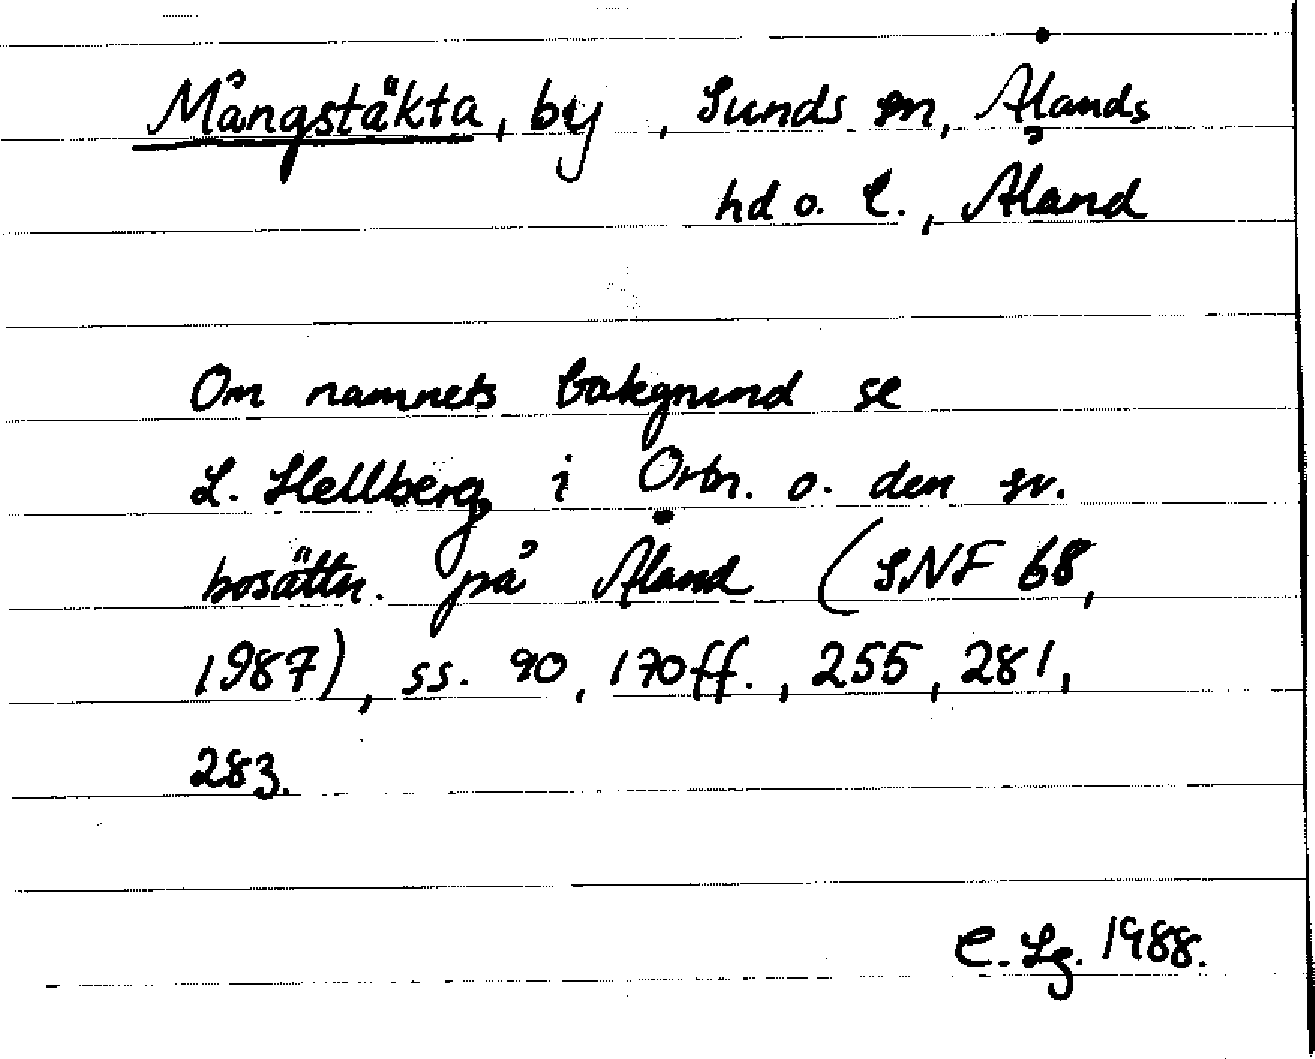 Mångstäkta, by , Sunds sn, Ålands
hd o. l., Åland
Om namnets bakgrund se
L. Hellberg i Ortn. o. den sv.
bosättn. på Åland (SNF 68,
1987), ss. 90, 170ff., 255, 281,
283.
C. Lg. 1988.